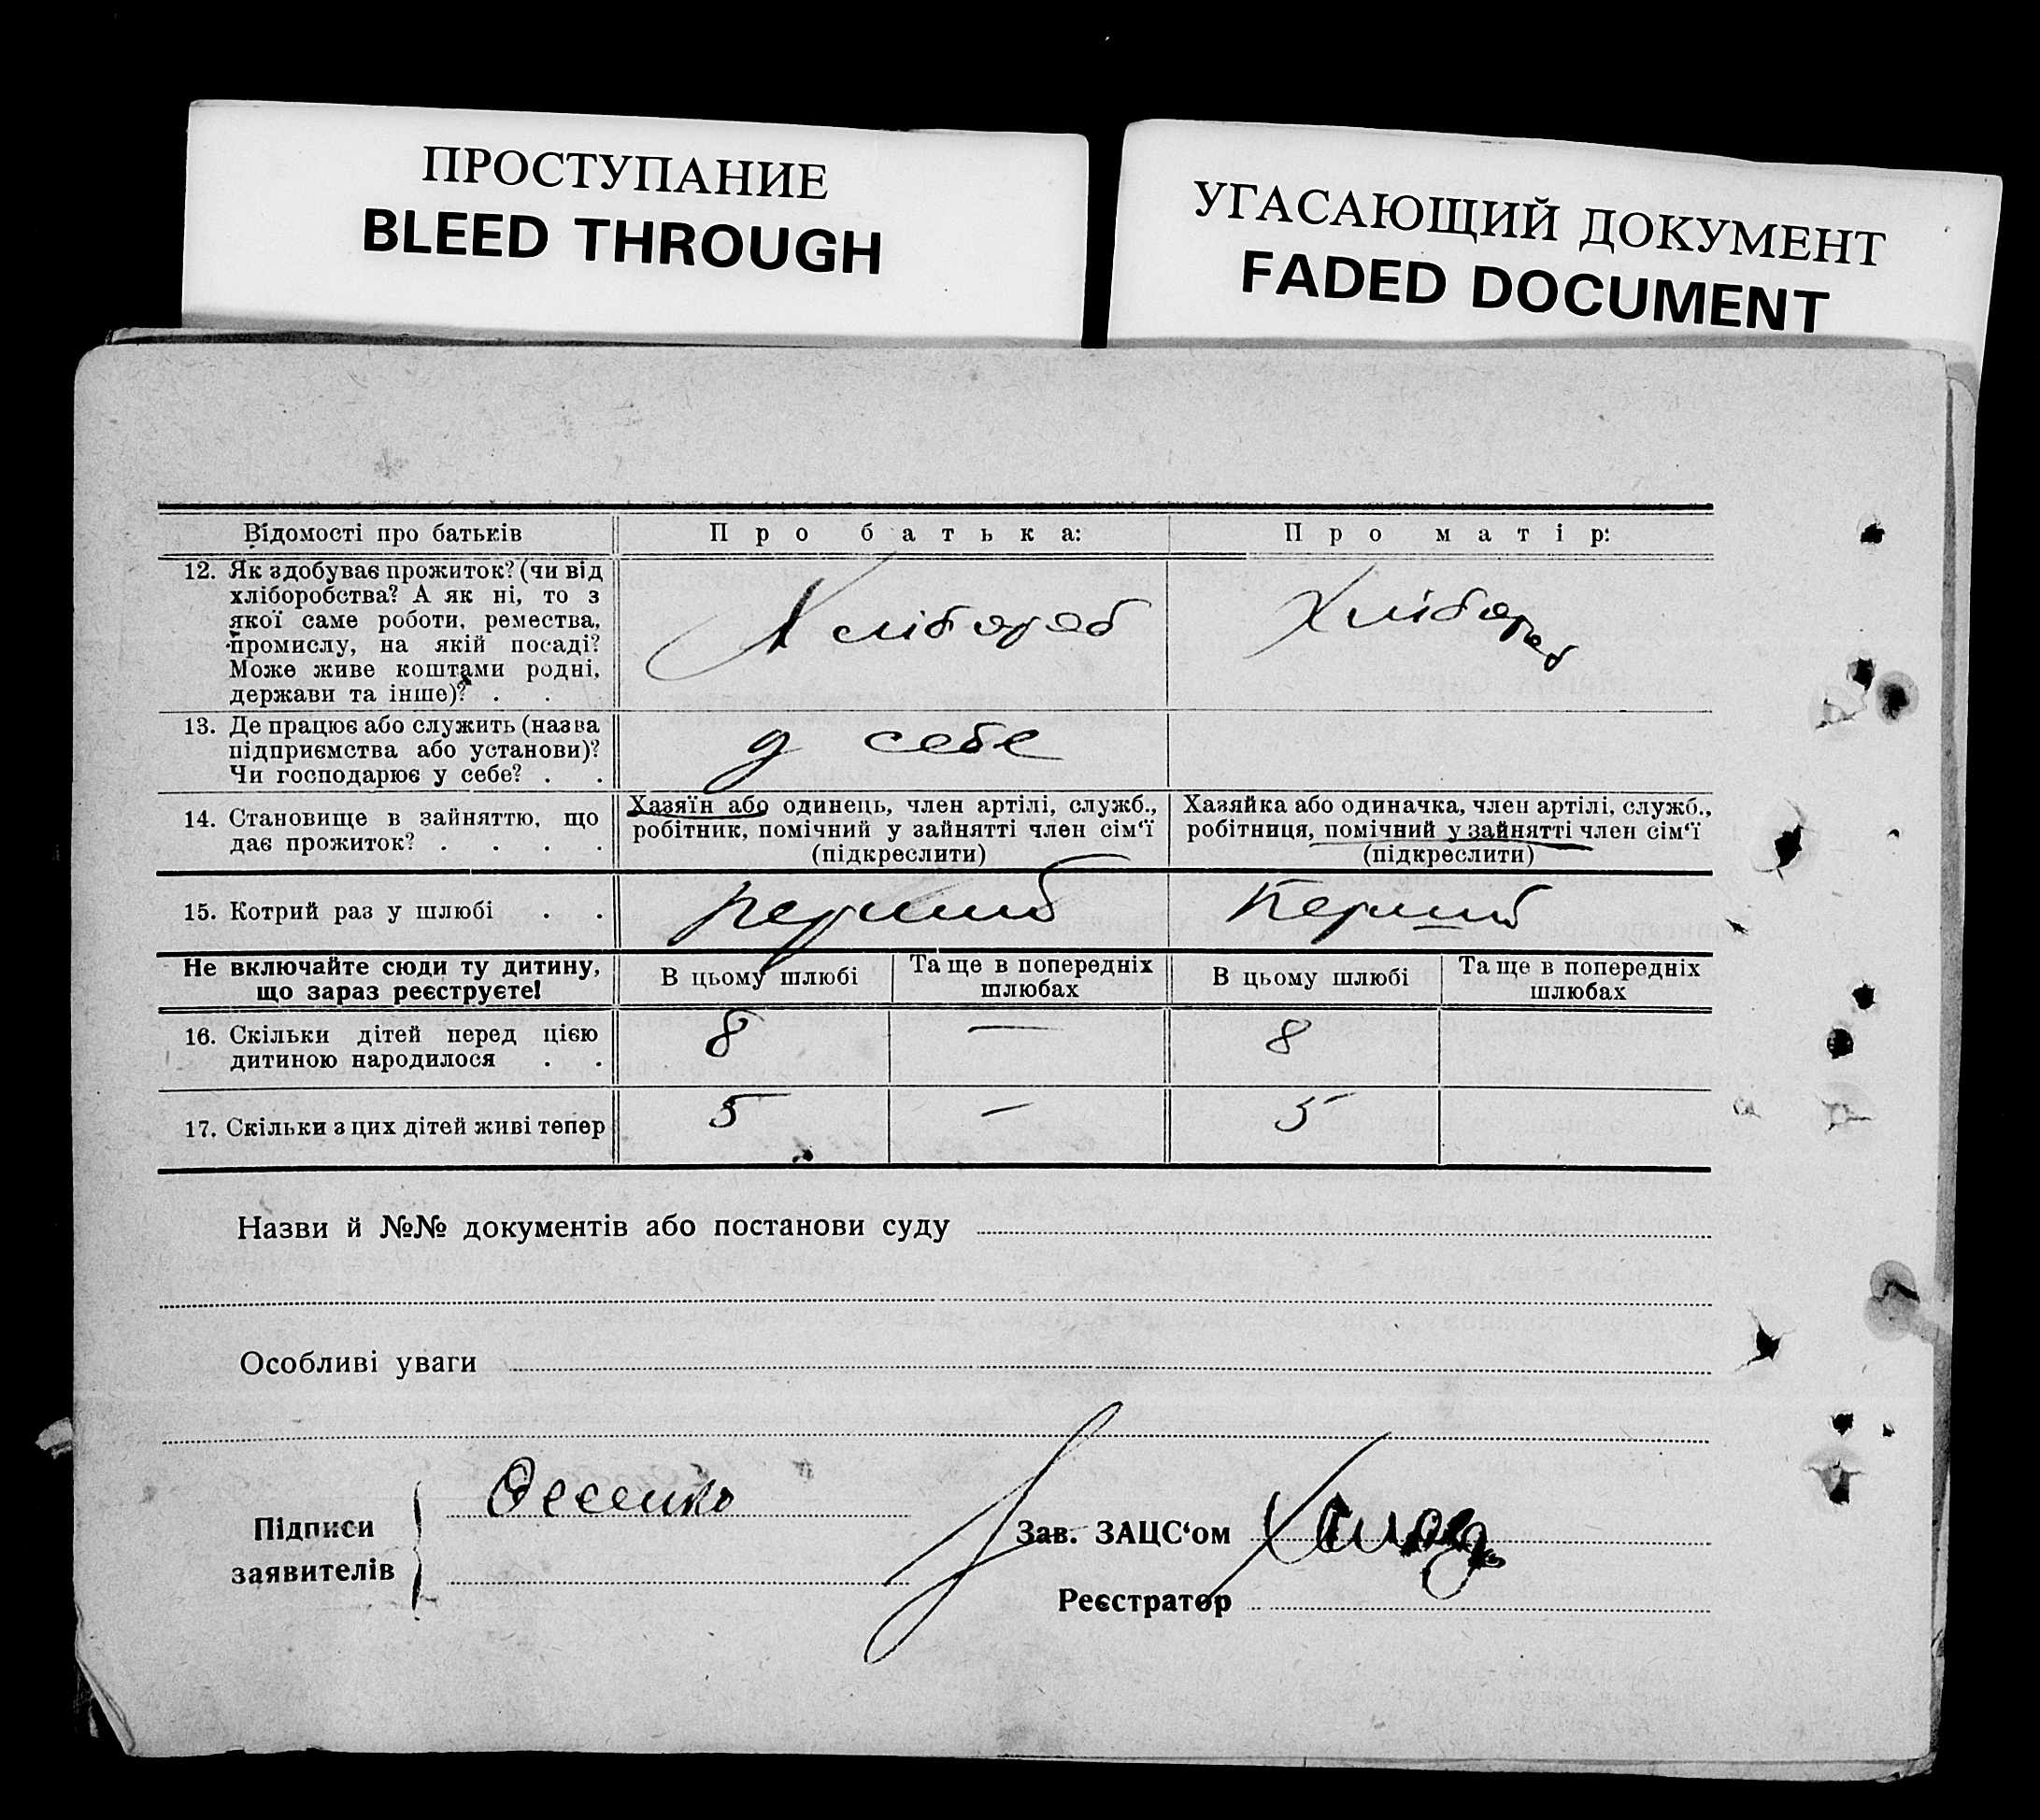 ПРОСТУПАНИЕ
BLEED THROUGH
УГАСАЮЩИЙ ДОКУМЕНТ
FADED DOCUMENT
Відомості про батьків
Про батька:
Про матір:
12. Як здобуває прожиток? (чи від
хліборобства? А як ні, то з
якої саме роботи, ремества,
промислу, на якій посаді?
Може живе коштами родні,
держави та інше)? . .
Хлібороб
Хлібороб
13. Де працює або служить (назва
підприємства або установи)?
Чи господарює у себе? . .
у себе
14. Становище в зайняттю, що
дає прожиток? . . . .
Хазяїн або одинець, член артілі, служб.,
робітник, помічний у зайнятті член сім‘ї
(підкреслити)
Хазяйка або одиначка, член артілі, служб.,
робітниця, помічний у зайнятті член сім‘ї
(підкреслити)
15. Котрий раз у шлюбі . .
перший
Перший
Не включайте сюди ту дитину,
що зараз реєструєте!
В цьому шлюбі
Та ще в попередніх
шлюбах
В цьому шлюбі
Та ще в попередніх
шлюбах
16. Скільки дітей перед цією
дитиною народилося . .
8
—
8
17. Скільки з цих дітей живі тепер
5
—
5
Назви й №№ документів або постанови суду
Особливі уваги
Підписи
заявителів
Зав. ЗАЦС‘ом
Реєстратор